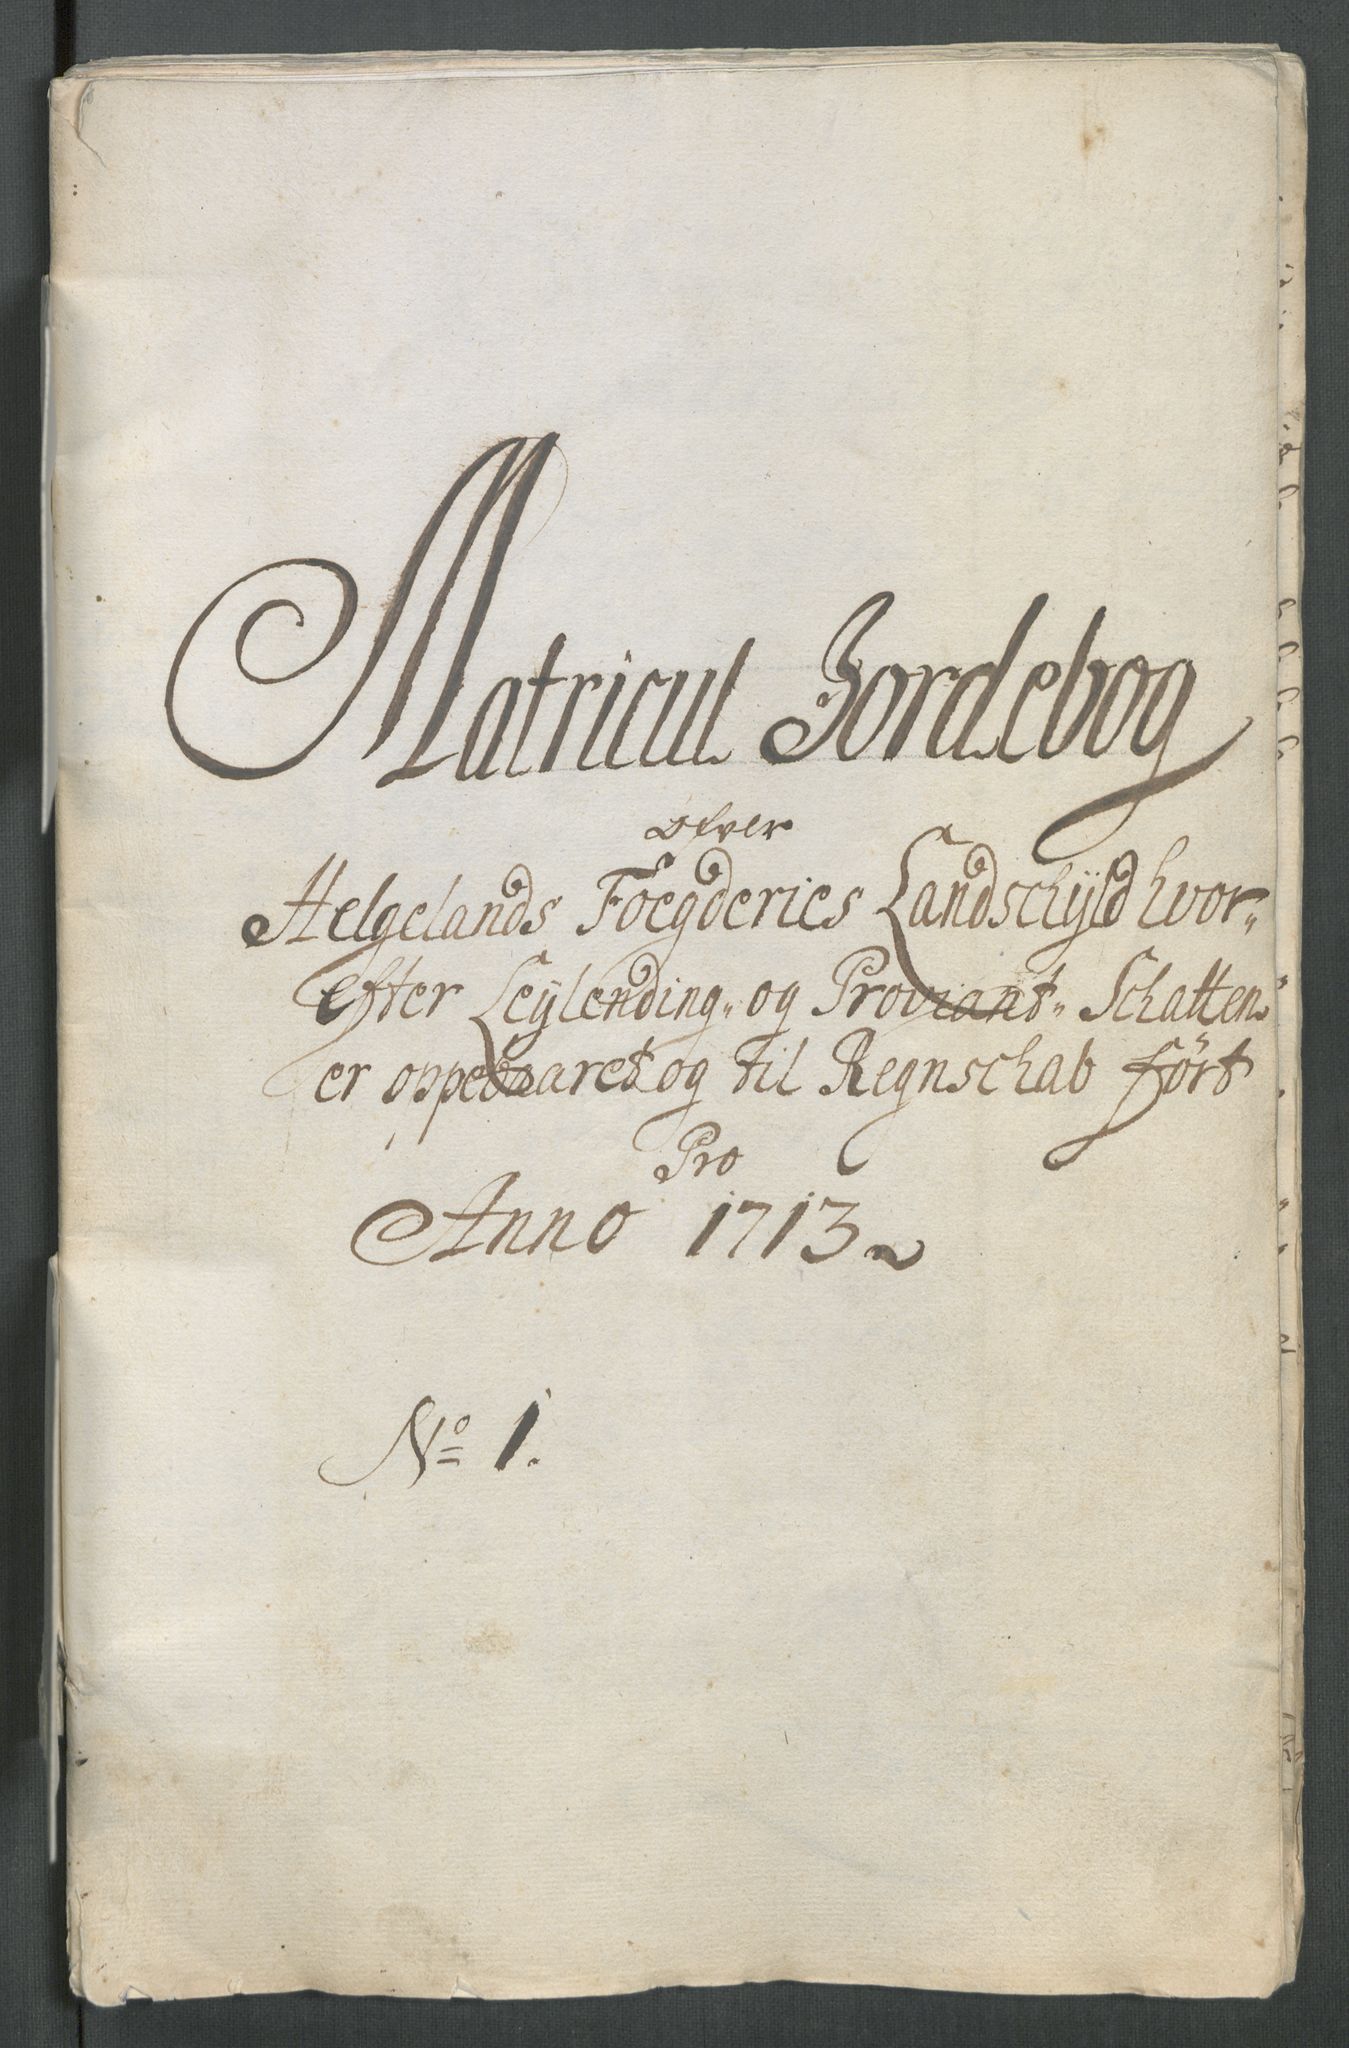 Matricul Jordebog
ofver
Helgelands Foegderies Landschÿld hvor„
Efter Leÿlending„ og Proviant„ Schatten„
er oppebaaret og til Regnschab fört
Pro
Anno 1713
No 1.